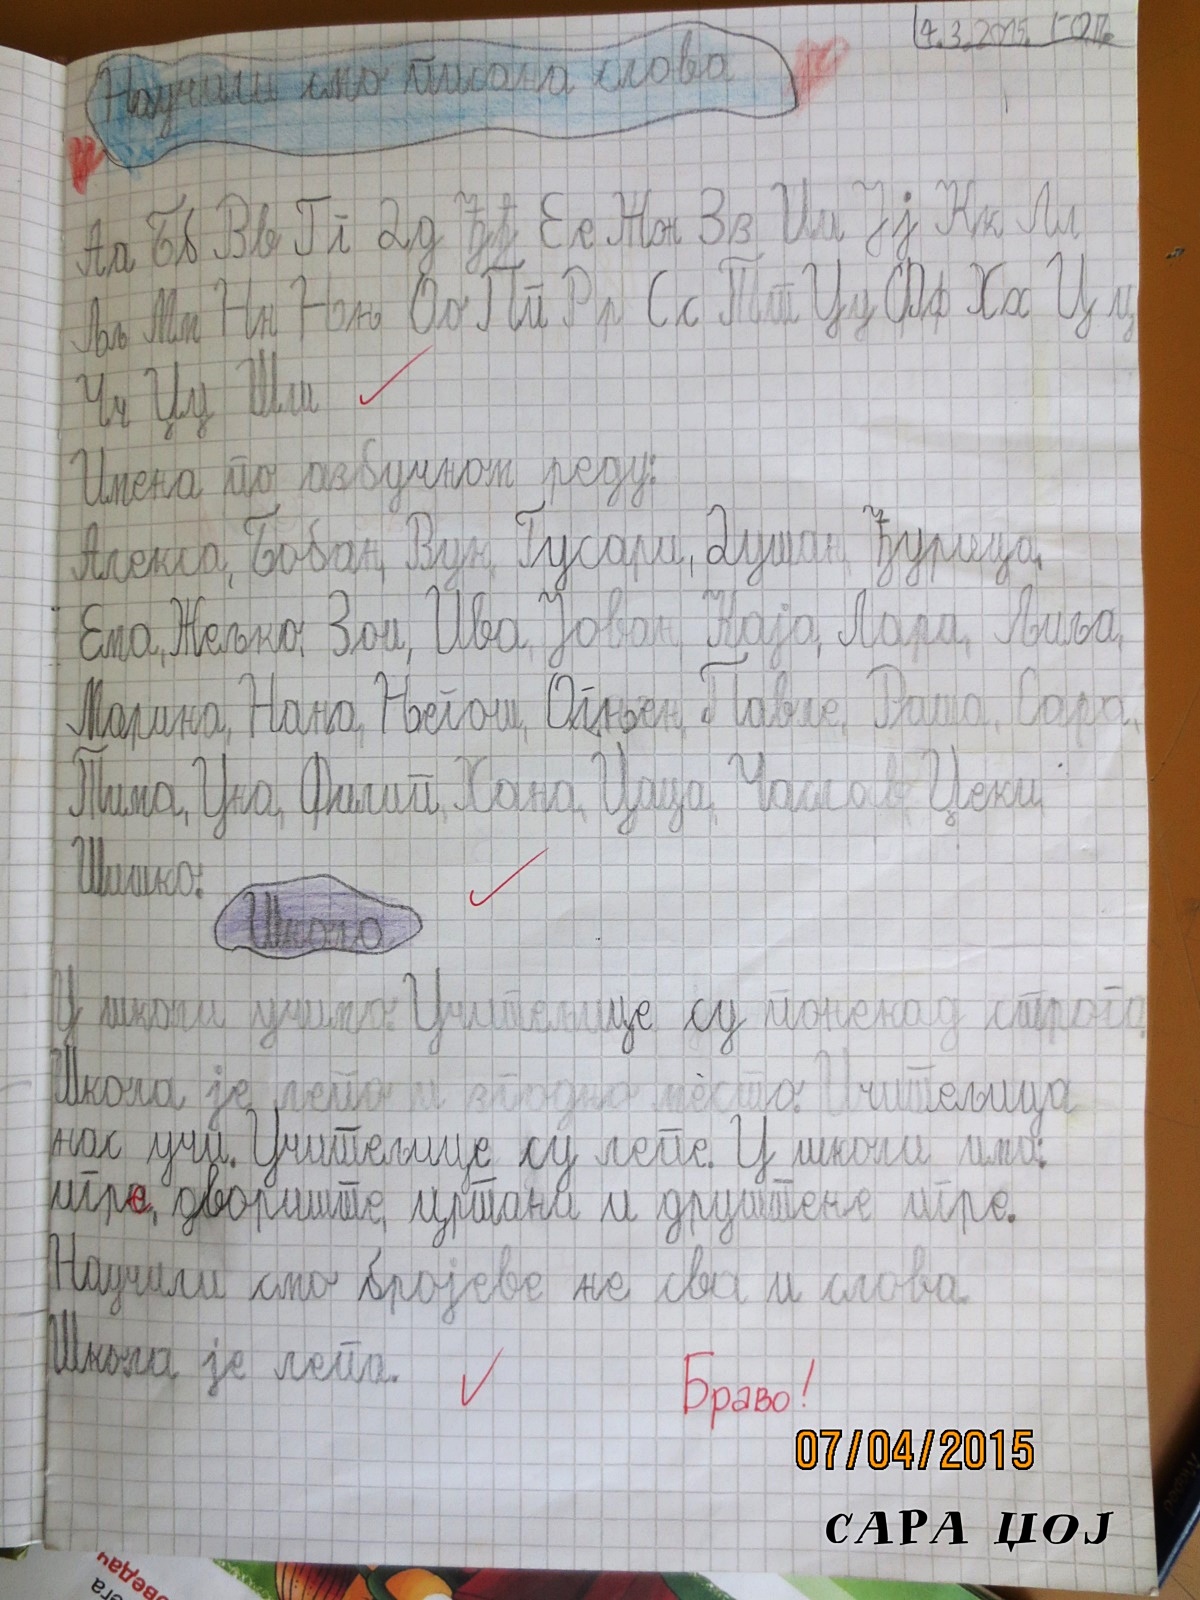 4.3.2015. год.
Научили смо писана слова
Аа Бб Вв Гг Дд Ђђ Ее Жж Зз Ии Јј Кк Лл
Љљ Мм Нн Њњ Оо Пп Рр Сс Тт Уу Фф Хх Цц
Чч Џџ Шш
Имена по азбучном реду:
Алекса, Бобан, Вук, Гусари, Душан, Ђурица,
Ема, Жељко, Зои, Ива, Јован, Каја, Лара, Љиља,
Марина, Нана, Његош, Огњен, Павле, Раша, Сара,
Тима, Уна, Филип, Хана, Цаца, Часлав, Џеки,
Шишко.
Школа
У школи учимо. Учитељице су понекад строге.
Школа је лепо и згодно место. Учитељица
нас учи. Учитељице су лепе. У школи има:
игре, двориште, цртани и друштене игре.
Научили смо бројеве не сва и слова.
Школа је лепа.
Браво!
07/04/2015
САРА ЏОЈ
оведач